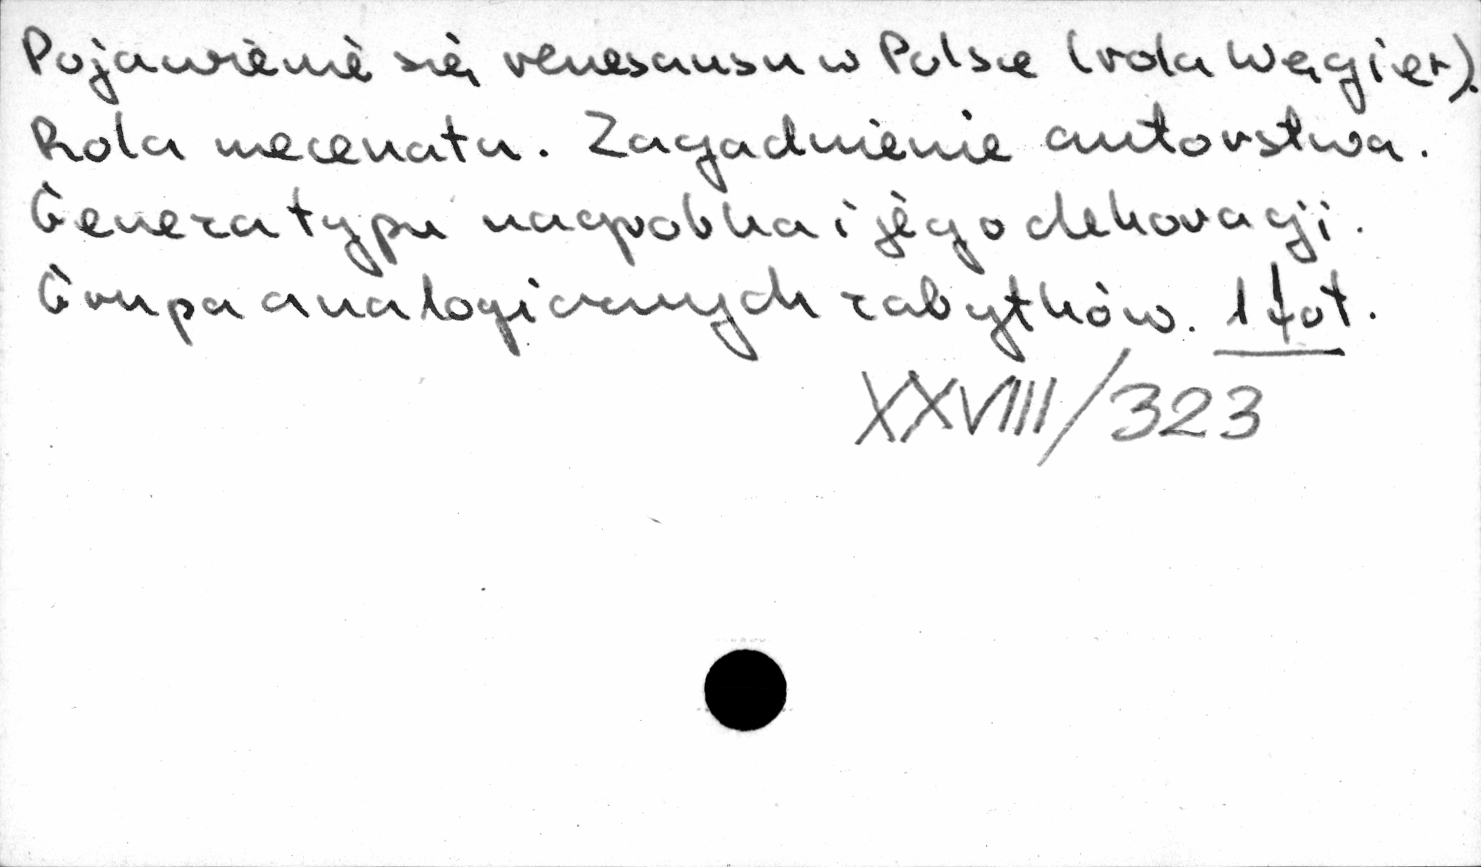 Pojawienie się renesansu w Polsce (rola Węgier).
Rola mecenata. Zagadnienie autorstwa.
Geneza typu nagrobka i jego dekoracji.
Grupa analogicznych zabytków. 1 fot.
XXVIII/323